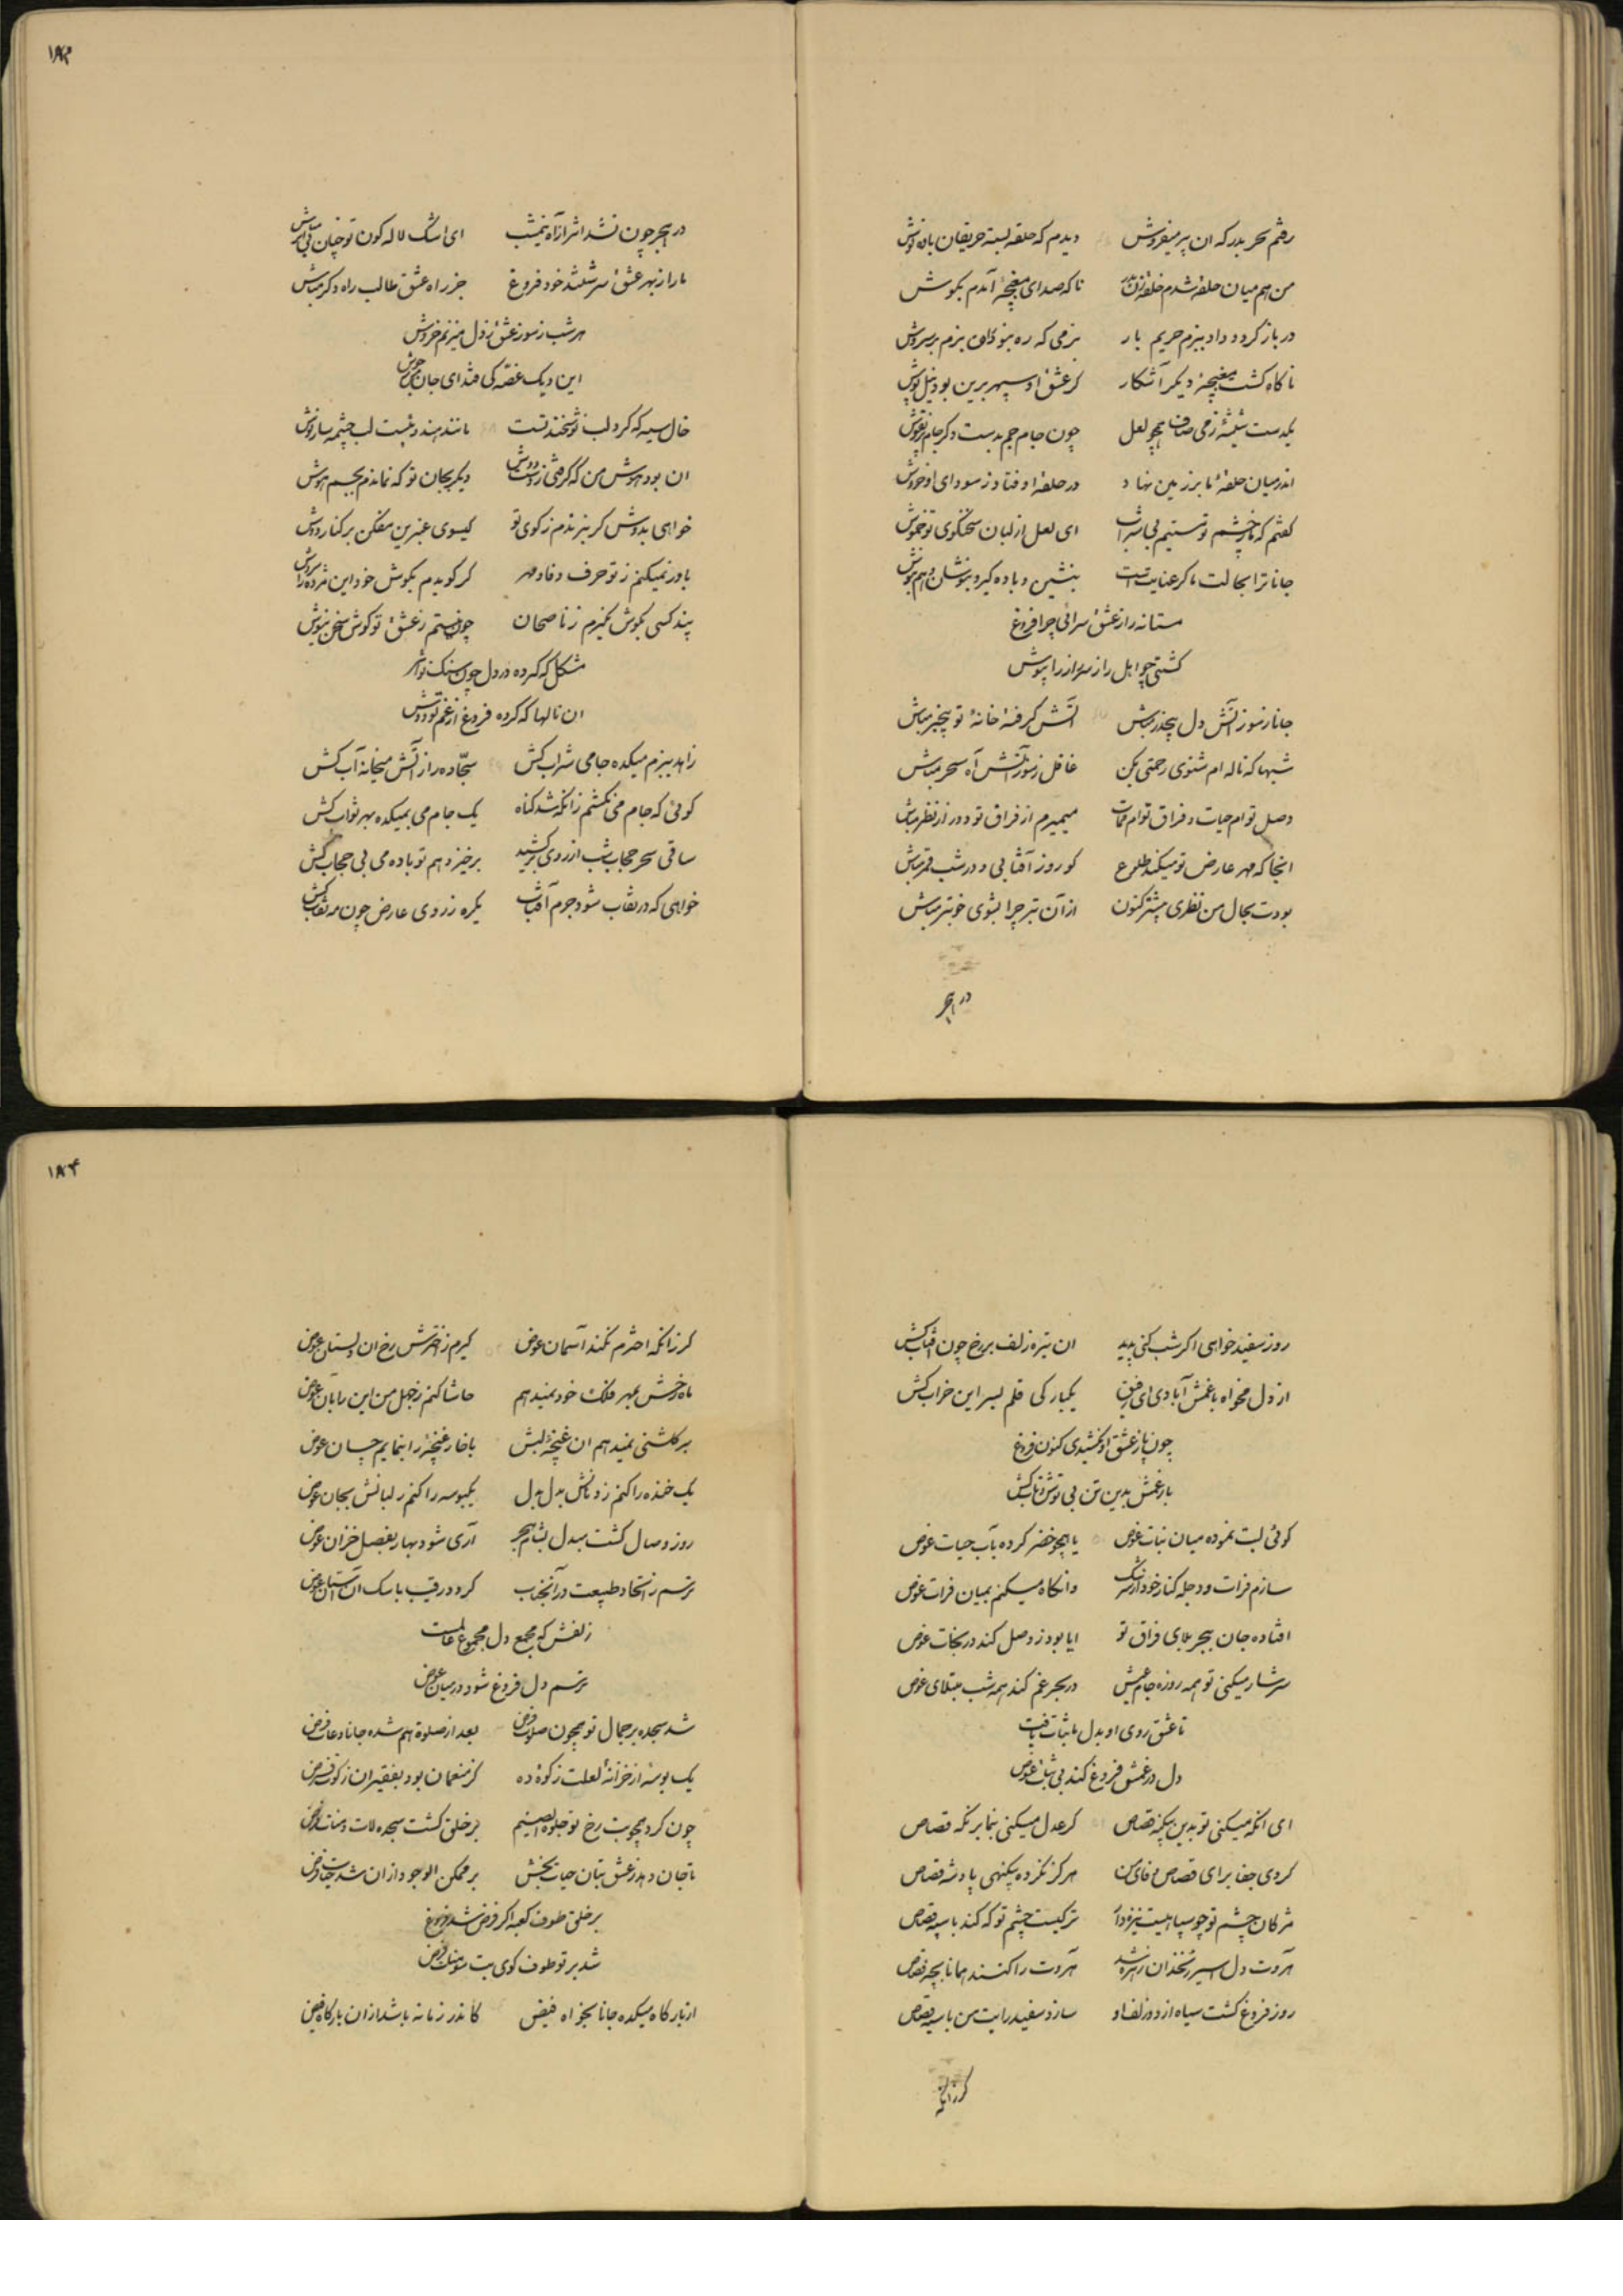 رفتم سحر بدرگه ان پیر میفروش دیدم که حلقه بسته حریفان باده نوش
من هم میان حلقه شدم حلقه زن ناکه صدای مغبچهٔ آمدم بکوش
در باز کرد و داد ببزم حریم بار بزمی که ره نبو بزم بر سروش
ناکاه کشت مغبچهٔ دیکر آشکار کز عشق او سپهر برین بود نیل پوش
یکدست شیشهٔ ز می صاف همچو لعل چون جام جم بدست دکر جام
اندر میان حلقهٔ ما بر زمین نهاد در حلقه اوفتاد ز سودای او خروش
کفتم که ما ز چشم تو مستیم بی شراب ای لعل از لبان سخنکوی تو خموش
جانا ترا بحالت ما کر عنایت است بنشین و باده کیر و بنوشان و هم بنوش
مستانه راز عشق سرائی چرا فروغ
کشتی چو اهل راز سر راز را بپوش
جانا ز سوز آتش دل بیحذر مباش آتش کرفته خانهٔ تو بیخبر مباش
شبها که ناله ام شنوی رحمتی بکن غافل ز سوز آتش آه سحر مباش
وصل توام حیات و فراق توام ممات میمیرم از فراق تو دور از نظر مباش
اینجا که مهر عارض تو میکند طلوع کو روز آفتابی و در شب قمر مباش
بودت بحال من نظری پیشتر کنون از آن بتر چرا بشوی خوبتر مباش
در هجر
۱۸۳
در هجر چون نشد اثر از آه نیمشب ای اشک لاله کون تو چنان بی اثر مباش
ما را ز بهر عشق سرشتند خود فروغ جز راه عشق طالب راه دکر مباش
هر شب ز سوز عشق ز دل میزنم خروش
این دیک غصه کی فتد ای جان ز جوش
خال سیه که کرد لب نوشخند تست مانند هندو بست لب چشمه سار نوش
ان بود هوش من که کرفتی ز دست دوش دیکر بجان تو که نماندم بجسم هوش
خواهی بدوش کر نبرندم ز کوی تو کیسوی عنبرین مفکن بر کنار دوش
باور نمیکنم ز تو حرف وفا و مهر کر کویدم بکوش خود این مژده را سروش
پند کسی بکوش نکیرم ز ناصحان چون نیستم ز عشق تو کوش سخن نیوش
مشکل که کرده در دل چون سنک تو اثر
ان نالها که کرده فروغ از غم تو دوش
زاهد ببزم میکده جامی شراب کش سجّاده را ز آتش میخانه آب کش
کوئی که جام می نکشم زانکه شد کناه یک جام می بمیکده بهر ثواب کش
ساقی سحر حجاب شب از روی بر کشید برخیز و هم تو باده می بی حجاب کش
خواهی که در نقاب شود جرم آفتاب یکره ز روی عارض چون مه نقاب کش
روز سفید خواهی اکر شب کنی پدید ان تیره زلف بر رخ چون آفتاب کش
از دل مخواه با غمش آبادی ای رفیق یکبارکی قلم بسر این خراب کش
چون پا ز عشق او نکشیدی کنون فروغ
بار غمش بدین تن بی توش و تاب کش
کوئی لبت نموده میان نبات غوص یا همچو خضر کرده بآب حیات غوص
سازم فرات و دجله کنار خود از سرشک وانکاه میکنم بمیان فرات غوص
افتاده جان ببحر بلای فراق تو ایا بود ز وصل کند در نجات غوص
سرشار میکنی تو همه روزه جام عیش در بحر غم کند همه شب مبتلای غوص
تا عشق روی او بدل ما ثبات یافت
دل در غمش فروغ کند بی ثبات غوص
ای انکه میکنی تو بدین بیکنه قصاص کر عدل میکنی بنما بر نکه قصاص
کردی جفا برای قصاص وفای من هرکز نکرده بیکنهی پادشه قصاص
مژکان چشم تو چو سپاهیست نیزه دار ترکیست چشم تو که کند با سپه قصاص
هاروت دل اسیر زنخدان زهره شد هاروت را کنند همانا بچه قصاص
روز فروغ کشت سیاه از دو زلف او سازد سفید رایت من با سیه قصاص
کر زانکه
۱۸۴
کر زانکه اخترم نکند آسمان عوض کیرم ز اخترش رخ ان دلستان عوض
ماه رخش بمهر فلک خود نمیدهم حاشا کنم ز جهل من این را بآن عوض
بر کلشنی نمیدهم ان غنچهٔ لبش با خار غنچه را بنمایم چسان عوض
یک خنده را کنم ز دهانش بدل بدل یکبوسه را کنم ز لبانش بجان عوض
روز وصال کشت مبدل بشام هجر آری شود بهار بفصل خزان عوض
ترسم ز اتحاد طبیعت در آنجناب کردد رقیب با سک ان آستان عوض
زلفش که مجمع دل مجموع عالمست
ترسم دل فروغ شود در میان عوض
شد سجده بر جمال تو همچون صلوة فرض بعد از صلوة هم شده جانا دعات فرض
یک بوسه از خزانهٔ لعلت زکوة ده کز منعمان بود بفقیران زکوت فرض
چون کرد همچو بت رخ تو جلوه ای صنم بر خلق کشت سجده لات و منات فرض
تا جان دهد ز عشق بتان حیات بخش بر ممکن الوجود از ان شد حیات فرض
بر خلق طوف کعبه اکر فرض شد فروغ
شد بر تو طوف کوی بت سومنات فرض
از بارکاه میکده جانا بخواه فیض کاندر زمانه باشد از ان بارکاه فیض